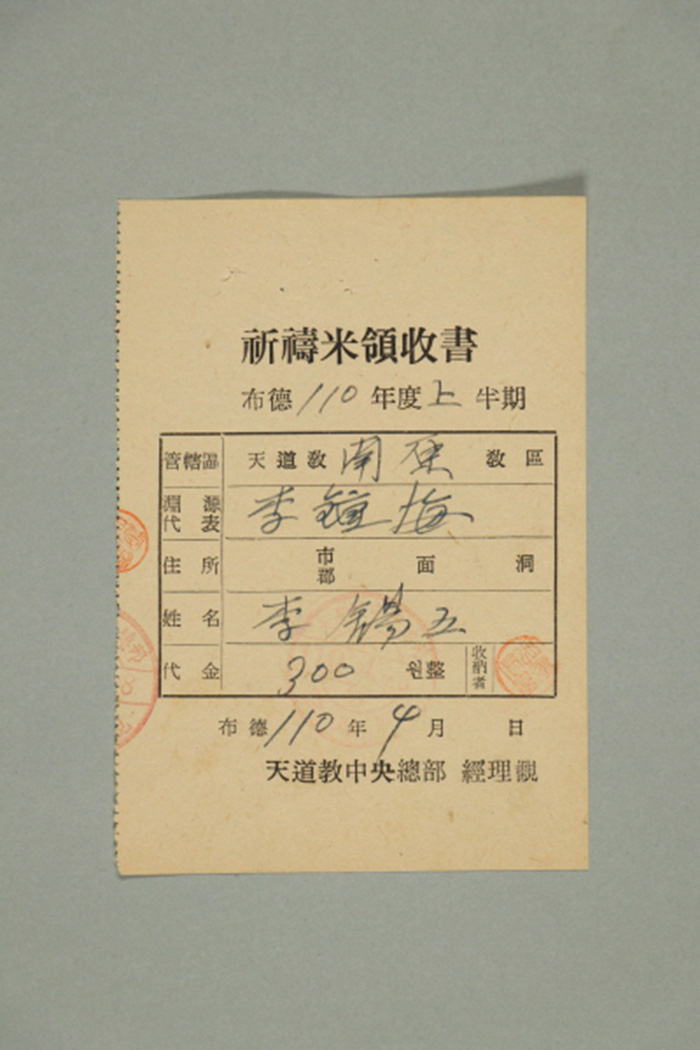 祈禱米領收書
布德 110 年度 上 半期
管轄區 天道敎 南原 敎區
淵源代表 李鍾海
住所 市郡 面 洞
姓名 李錫五
代金 300 원整 收納者
布德 110 年 4 月 日
天道敎中央總部 經理觀